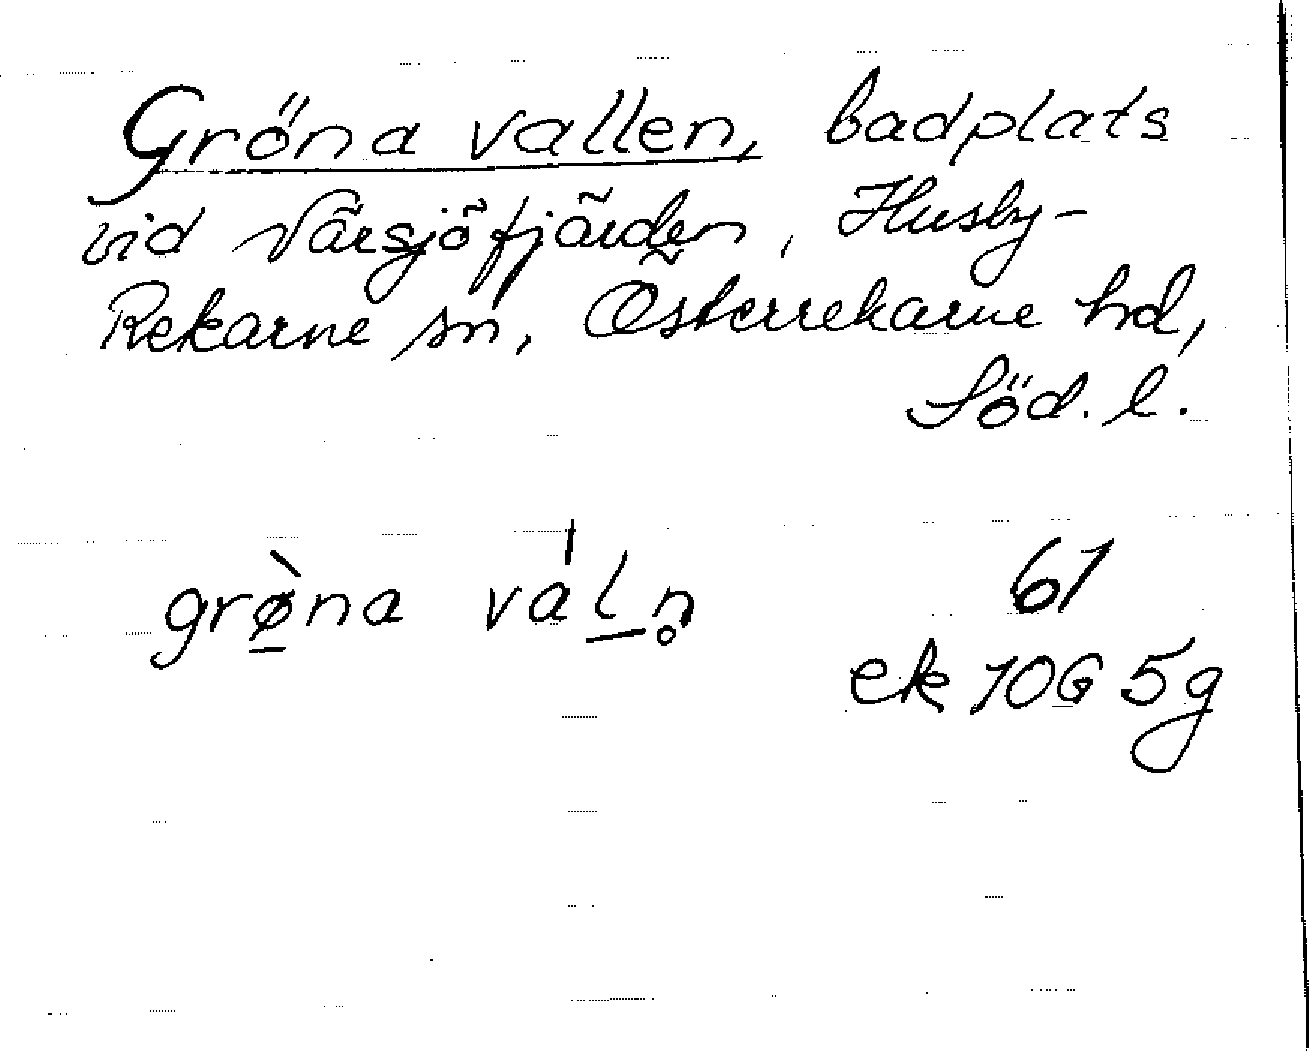 Gröna vallen, badplats
vid Närsjöfjärden, Husby-
Rekarne sn, Österrekarne hd,
Söd. l.
grø̀na vál̠n̥ 61
ek 10G 5g